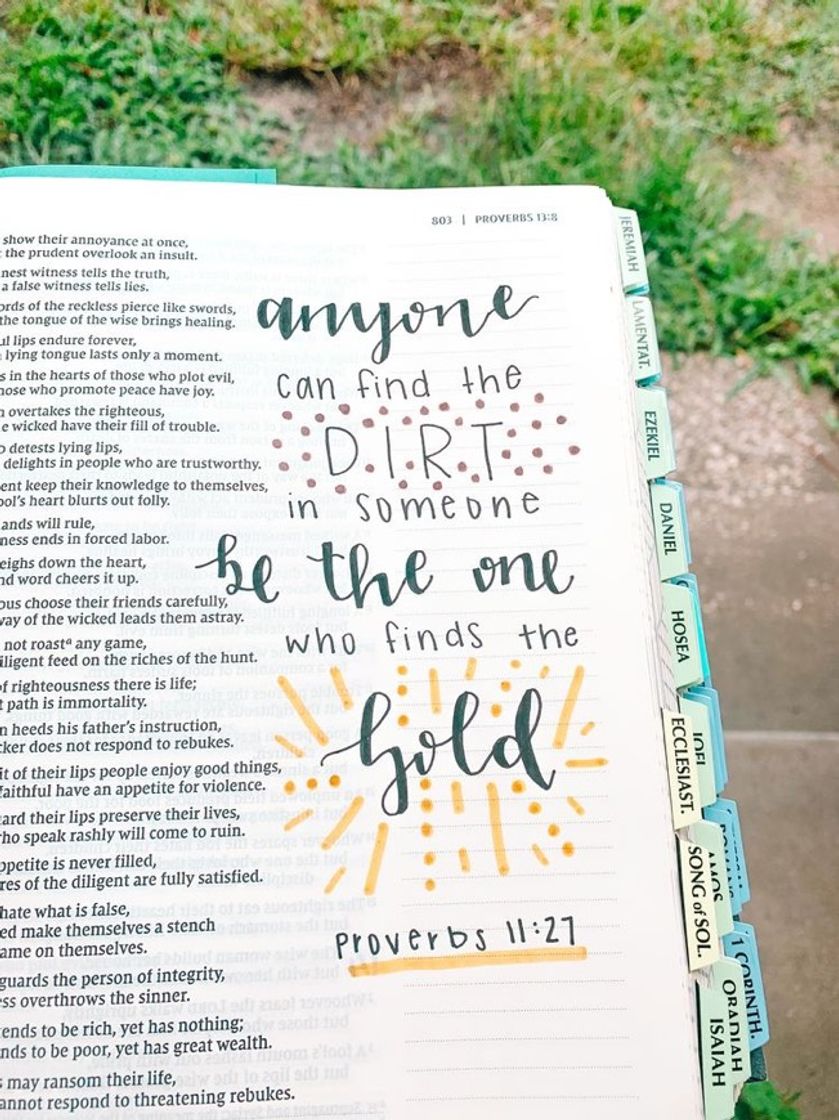 803 | PROVERBS 13:8
show their annoyance at once,
the prudent overlook an insult.
witness tells the truth,
a false witness tells lies.
of the reckless pierce like swords,
the tongue of the wise brings healing.
lips endure forever,
lying tongue lasts only a moment.
in the hearts of those who plot evil,
who promote peace have joy.
overtakes the righteous,
wicked have their fill of trouble.
detests lying lips,
delights in people who are trustworthy.
keep their knowledge to themselves,
heart blurts out folly.
will rule,
ends in forced labor.
down the heart,
word cheers it up.
choose their friends carefully,
way of the wicked leads them astray.
not roastᵃ any game,
feed on the riches of the hunt.
of righteousness there is life;
path is immortality.
heeds his father's instruction,
does not respond to rebukes.
of their lips people enjoy good things,
have an appetite for violence.
their lips preserve their lives,
who speak rashly will come to ruin.
appetite is never filled,
of the diligent are fully satisfied.
hate what is false,
make themselves a stench
on themselves.
guards the person of integrity,
overthrows the sinner.
to be rich, yet has nothing;
to be poor, yet has great wealth.
may ransom their life,
cannot respond to threatening rebukes.
anyone
can find the
D.I.R.T
in someone
be the one
who finds the
gold
Proverbs 11:27
JEREMIAH
LAMENTAT.
EZEKIEL
DANIEL
HOSEA
JOEL
ECCLESIAST.
AMOS
SONG of SOL.
1 CORINTH.
OBADIAH
ISAIAH